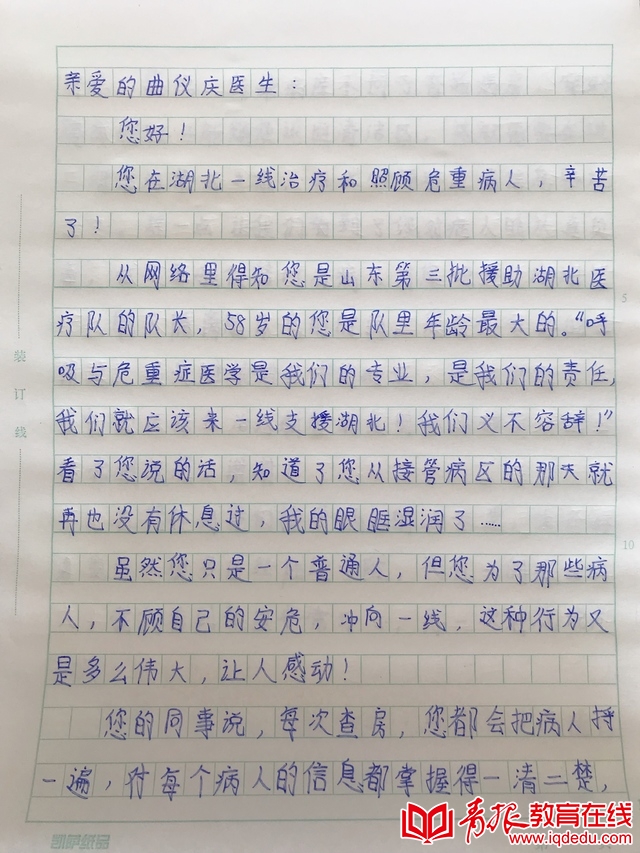 亲爱的曲仪庆医生：
您好！
您在湖北一线治疗和照顾危重病人，辛苦
了！
从网络里得知您是山东第三批援助湖北医
疗队的队长，58岁的您是队里年龄最大的。“呼
吸与危重症医学是我们的专业，是我们的责任，
我们就应该来一线支援湖北！我们义不容辞！”
看了您说的话，知道了您从接管病区的那天就
再也没有休息过，我的眼眶湿润了……
虽然您只是一个普通人，但您为了那些病
人，不顾自己的安危，冲向一线，这种行为又
是多么伟大，让人感动！
您的同事说，每次查房，您都会把病人捋
一遍，对每个病人的信息都掌握得一清二楚，
装订线
5
10
青报教育在线
www.iqdedu.com